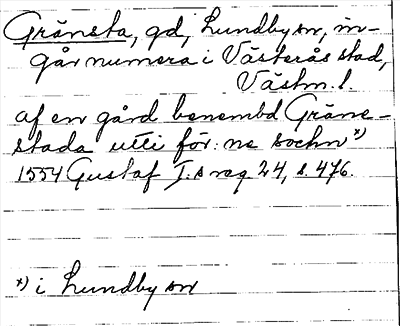 Gränsta, gd, Lundby sn, in-
går numera i Västerås stad,
Västm. l.
af en gård benembd Gräne-
stada utti för: ne sochn x)
1554 Gustaf I:s reg 24, s. 476.
x) i Lundby sn